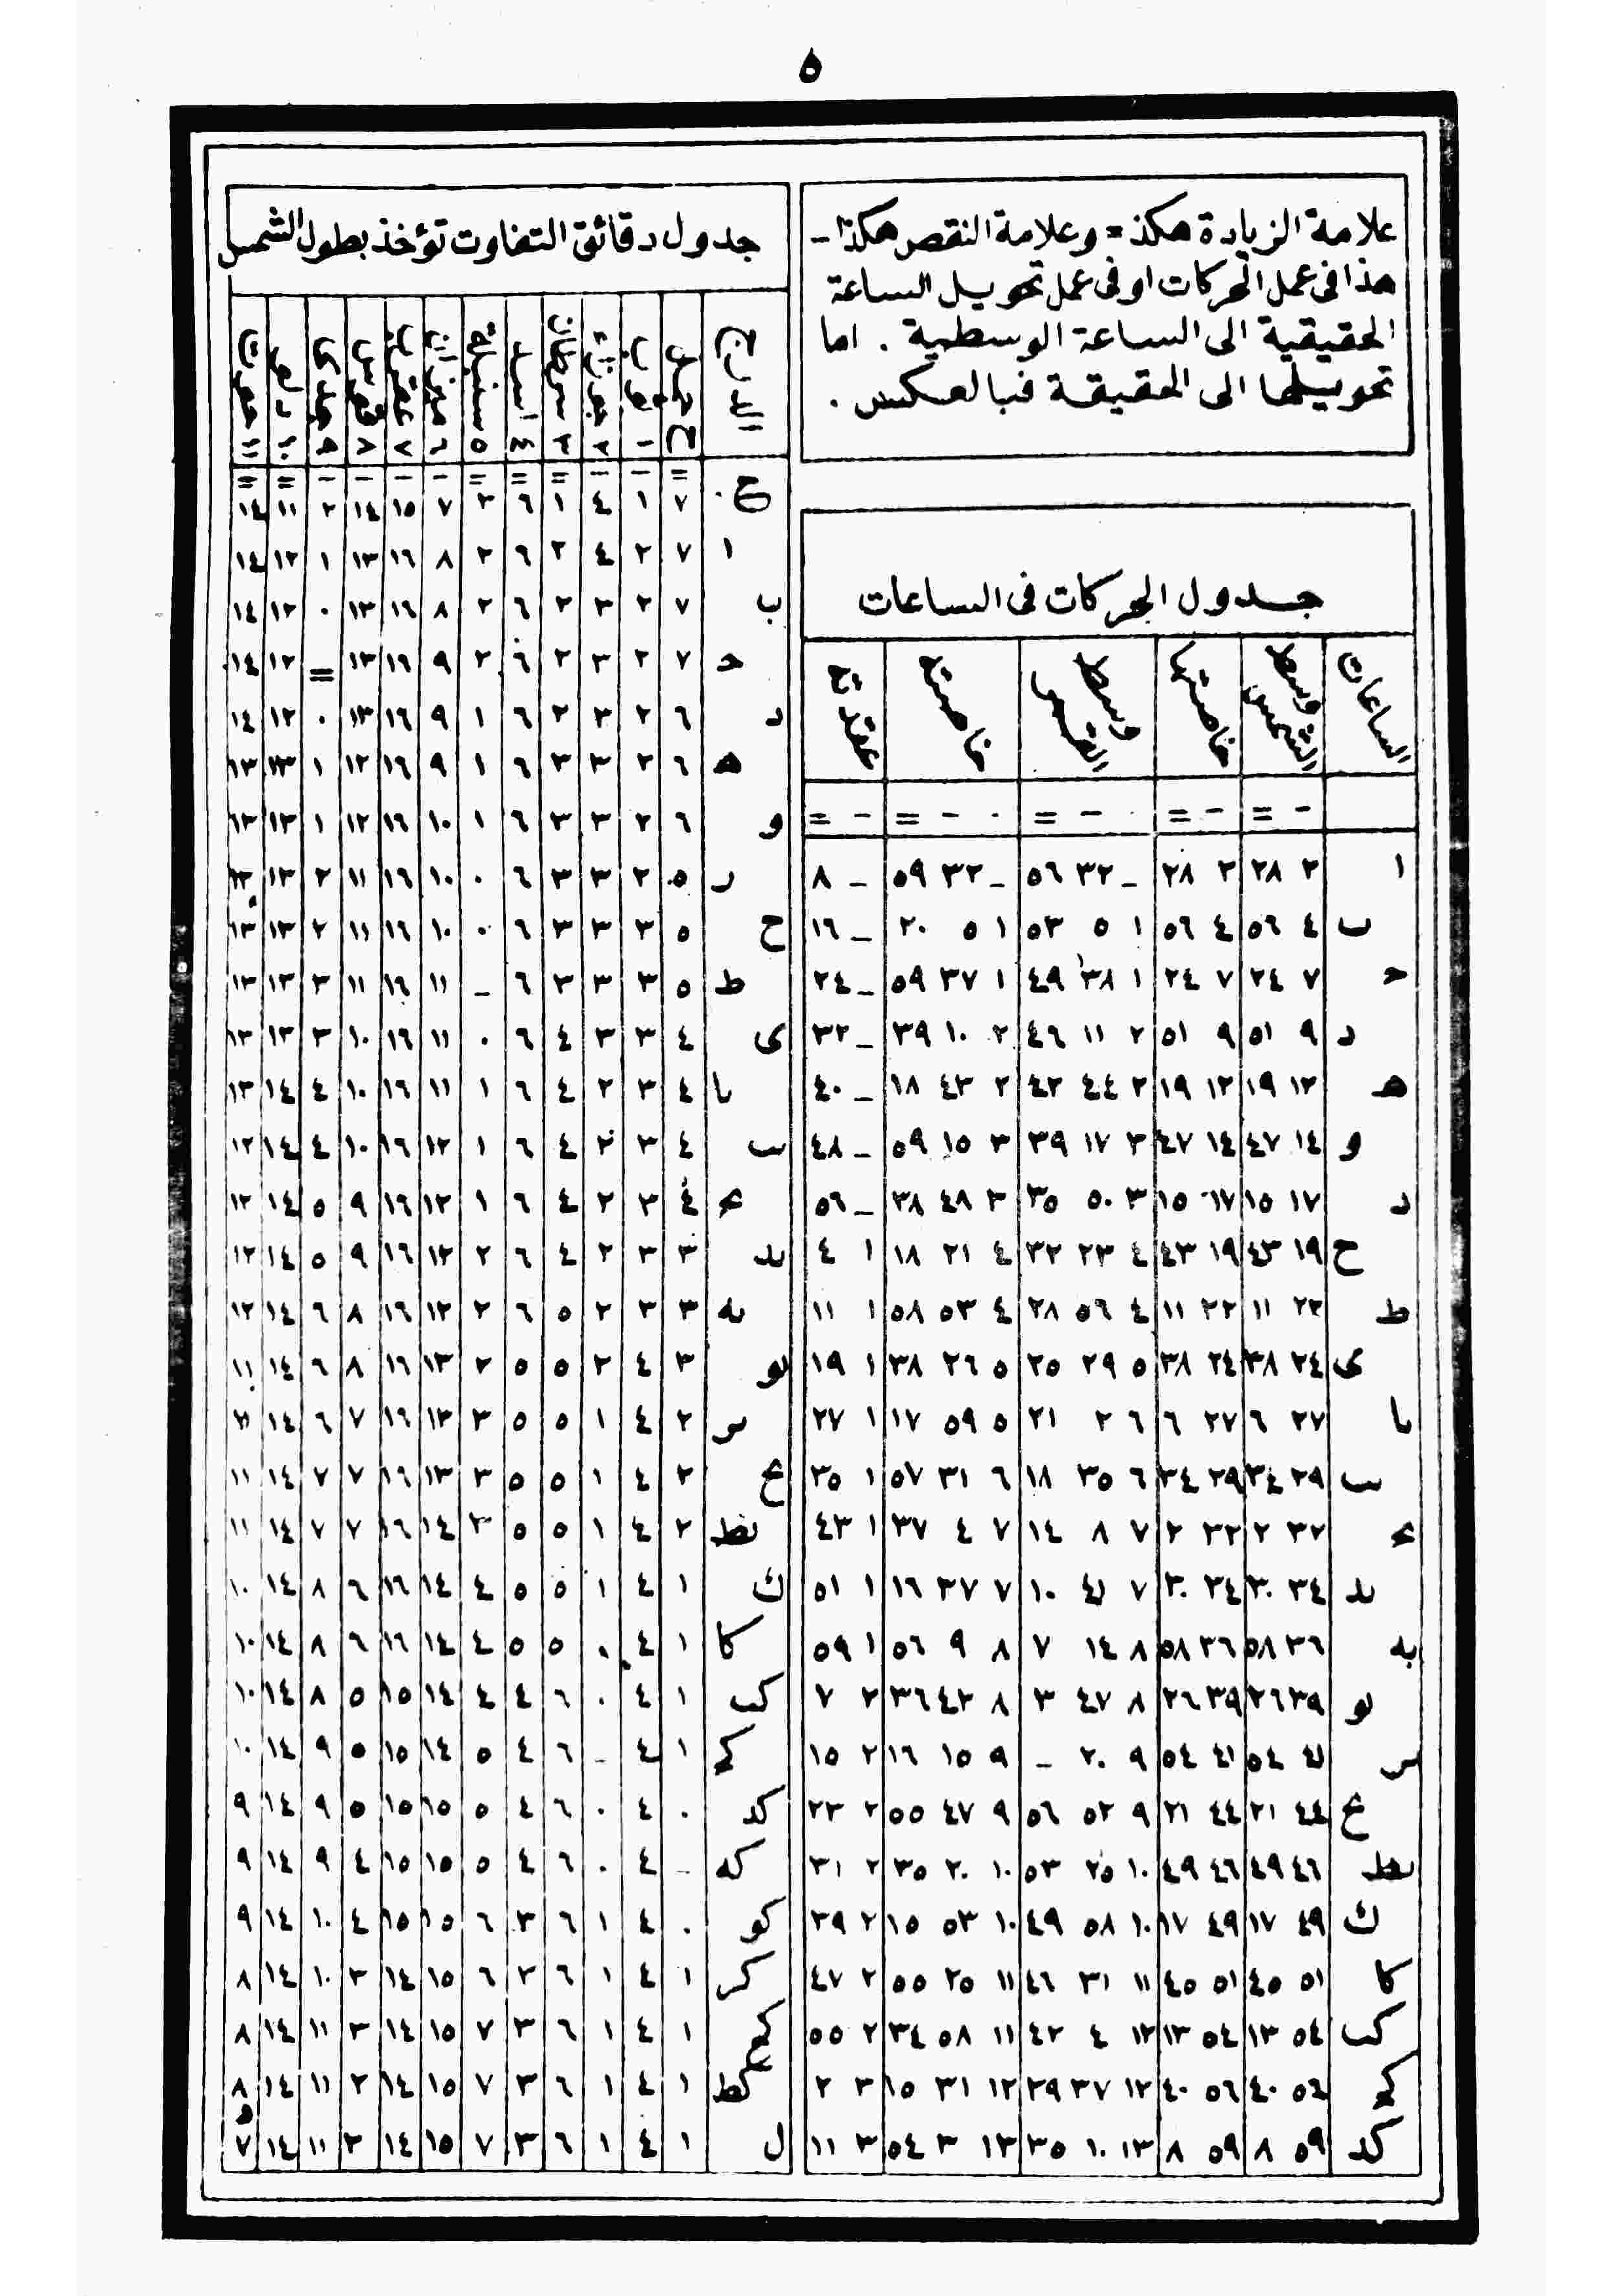 ٥
علامة الزيادة هكذ = وعلامة النقص هكذا -
هذا فى عمل الحركات او فى عمل تحويل الساعة
الحقيقية الى الساعة الوسطية . اما
تحويلها الى الحقيقة فبالعكس .
جدول الحركات فى الساعات
الساعات وسط الشمس خاصتها وسط القمر خاصته عقدته
- = - = . - = . - = - =
ا ٢ ٢٨ ٢ ٢٨ - ٣٢ ٥٦ - ٣٢ ٥٩ - ٨
ب ٤ ٥٦ ٤ ٥٦ ١ ٥ ٥٣ ١ ٥ ٢٠ - ١٦
ح ٧ ٢٤ ٧ ٢٤ ١ ٣٨ ٤٩ ١ ٣٧ ٥٩ - ٢٤
د ٩ ٥١ ٩ ٥١ ٢ ١١ ٤٦ ٢ ١٠ ٣٩ - ٣٢
ه ١٢ ١٩ ١٢ ١٩ ٢ ٤٤ ٤٢ ٢ ٤٣ ١٨ - ٤٠
و ١٤ ٤٧ ١٤ ٤٧ ٣ ١٧ ٣٩ ٣ ١٥ ٥٩ - ٤٨
د ١٧ ١٥ ١٧ ١٥ ٣ ٥٠ ٣٥ ٣ ٤٨ ٣٨ - ٥٦
ح ١٩ ٤٣ ١٩ ٤٣ ٤ ٢٣ ٣٢ ٤ ٢١ ١٨ ١ ٤
ط ٢٢ ١١ ٢٢ ١١ ٤ ٥٦ ٢٨ ٤ ٥٣ ٥٨ ١ ١١
ى ٢٤ ٣٨ ٢٤ ٣٨ ٥ ٢٩ ٢٥ ٥ ٢٦ ٣٨ ١ ١٩
يا ٢٧ ٦ ٢٧ ٦ ٦ ٢ ٢١ ٥ ٥٩ ١٧ ١ ٢٧
يب ٢٩ ٣٤ ٢٩ ٣٤ ٦ ٣٥ ١٨ ٦ ٣١ ٥٧ ١ ٣٥
يح ٣٢ ٢ ٣٢ ٢ ٧ ٨ ١٤ ٧ ٤ ٣٧ ١ ٤٣
يد ٣٤ ٣٠ ٣٤ ٣٠ ٧ ٤١ ١٠ ٧ ٣٧ ١٦ ١ ٥١
يه ٣٦ ٥٨ ٣٦ ٥٨ ٨ ١٤ ٧ ٨ ٩ ٥٦ ١ ٥٩
يو ٣٩ ٢٦ ٣٩ ٢٦ ٨ ٤٧ ٣ ٨ ٤٢ ٣٦ ٢ ٧
ير ٤١ ٥٤ ٤١ ٥٤ ٩ ٢٠ - ٩ ١٥ ١٦ ٢ ١٥
يح ٤٤ ٢١ ٤٤ ٢١ ٩ ٥٢ ٥٦ ٩ ٤٧ ٥٥ ٢ ٢٣
يط ٤٦ ٤٩ ٤٦ ٤٩ ١٠ ٢٥ ٥٣ ١٠ ٢٠ ٣٥ ٢ ٣١
ك ٤٩ ١٧ ٤٩ ١٧ ١٠ ٥٨ ٤٩ ١٠ ٥٣ ١٥ ٢ ٣٩
كا ٥١ ٤٥ ٥١ ٤٥ ١١ ٣١ ٤٦ ١١ ٢٥ ٥٥ ٢ ٤٧
كب ٥٤ ١٣ ٥٤ ١٣ ١٢ ٤ ٤٢ ١١ ٥٨ ٣٤ ٢ ٥٥
كح ٥٤ ٤٠ ٥٦ ٤٠ ١٢ ٣٧ ٣٩ ١٢ ٣١ ١٥ ٣ ٢
كد ٥٩ ٨ ٥٩ ٨ ١٣ ١٠ ٣٥ ١٣ ٣ ٥٤ ٣ ١١
جدول دقائق التفاوت تؤخذ بطول الشمس
الدرج حمل ثور جوزاء سرطان اسد سنبلة ميزان عقرب قوس جدى دلو حوت
ح ١ ٢ ٣ ٤ ٥ ٦ ٧ ٨ ٩ ١٠ ١١
= - - = = = - - - - = =
ح٠ ٧ ١ ٤ ١ ٦ ٣ ٧ ١٥ ١٤ ٢ ١١ ١٤
ا ٧ ٢ ٤ ٢ ٦ ٢ ٨ ١٦ ١٣ ١ ١٢ ١٤
ب ٧ ٢ ٣ ٢ ٦ ٢ ٨ ١٦ ١٣ ٠ ١٢ ١٤
ح ٧ ٢ ٣ ٢ ٦ ٢ ٩ ١٦ ١٣ = ١٢ ١٤
د ٦ ٢ ٣ ٢ ٦ ١ ٩ ١٦ ١٣ ٠ ١٢ ١٤
ه ٦ ٢ ٣ ٣ ٦ ١ ٩ ١٦ ١٢ ١ ١٣ ١٣
و ٦ ٢ ٣ ٣ ٦ ١ ١٠ ١٦ ١٢ ١ ١٣ ١٣
ر ٥ ٢ ٣ ٣ ٦ ٠ ١٠ ١٦ ١١ ٢ ١٣ ١٣
ح ٥ ٣ ٣ ٣ ٦ ٠ ١٠ ١٦ ١١ ٢ ١٣ ١٣
ط ٥ ٣ ٣ ٣ ٦ - ١١ ١٦ ١١ ٣ ١٣ ١٣
ى ٤ ٣ ٣ ٤ ٦ ٠ ١١ ١٦ ١٠ ٣ ١٣ ١٣
يا ٤ ٣ ٢ ٤ ٦ ١ ١١ ١٦ ١٠ ٤ ١٤ ١٣
يب ٤ ٣ ٢ ٤ ٦ ١ ١٢ ١٦ ١٠ ٤ ١٤ ١٢
يح ٤ ٣ ٢ ٤ ٦ ١ ١٢ ١٦ ٩ ٥ ١٤ ١٢
يد ٣ ٣ ٢ ٤ ٦ ٢ ١٢ ١٦ ٩ ٥ ١٤ ١٢
يه ٣ ٣ ٢ ٥ ٦ ٢ ١٢ ١٦ ٨ ٦ ١٤ ١٢
يو ٣ ٤ ٢ ٥ ٥ ٢ ١٣ ١٦ ٨ ٦ ١٤ ١١
ير ٢ ٤ ١ ٥ ٥ ٣ ١٣ ١٦ ٧ ٦ ١٤ ١١
يح ٢ ٤ ١ ٥ ٥ ٣ ١٣ ١٦ ٧ ٧ ١٤ ١١
يط ٢ ٤ ١ ٥ ٥ ٣ ١٤ ١٦ ٧ ٧ ١٤ ١١
ك ١ ٤ ١ ٥ ٥ ٤ ١٤ ١٦ ٦ ٨ ١٤ ١٠
كا ١ ٤ ٠ ٥ ٥ ٤ ١٤ ١٦ ٦ ٨ ١٤ ١٠
كب ١ ٤ ٠ ٦ ٤ ٤ ١٤ ١٥ ٥ ٨ ١٤ ١٠
كح ١ ٤ - ٦ ٤ ٥ ١٤ ١٥ ٥ ٩ ١٤ ١٠
كد ٠ ٤ ٠ ٦ ٤ ٥ ١٥ ١٥ ٥ ٩ ١٤ ٩
كه - ٤ ٠ ٦ ٤ ٥ ١٥ ١٥ ٤ ٩ ١٤ ٩
كو ٠ ٤ ١ ٦ ٣ ٦ ١٥ ١٥ ٤ ١٠ ١٤ ٩
كر ١ ٤ ١ ٦ ٣ ٦ ١٥ ١٤ ٣ ١٠ ١٤ ٨
كح ١ ٤ ١ ٦ ٣ ٧ ١٥ ١٤ ٣ ١١ ١٤ ٨
كط ١ ٤ ١ ٦ ٣ ٧ ١٥ ١٤ ٢ ١١ ١٤ ٨
ل ١ ٤ ١ ٦ ٣ ٧ ١٥ ١٤ ٢ ١١ ١٤ ٧